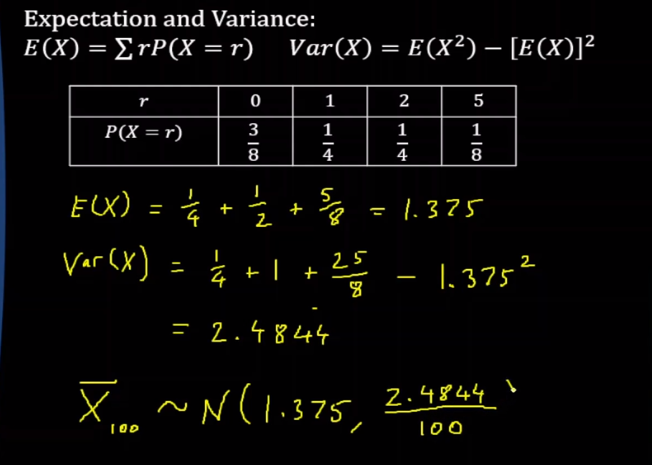 Expectation and Variance:
E(X) = ∑ rP(X = r)   Var(X) = E(X²) − [E(X)]²
r 0 1 2 5
P(X = r) 3/8 1/4 1/4 1/8
E(X) = 1/4 + 1/2 + 5/8 = 1.375
Var(X) = 1/4 + 1 + 25/8 − 1.375²
= 2.4844
X̄₁₀₀ ~ N(1.375, 2.4844/100